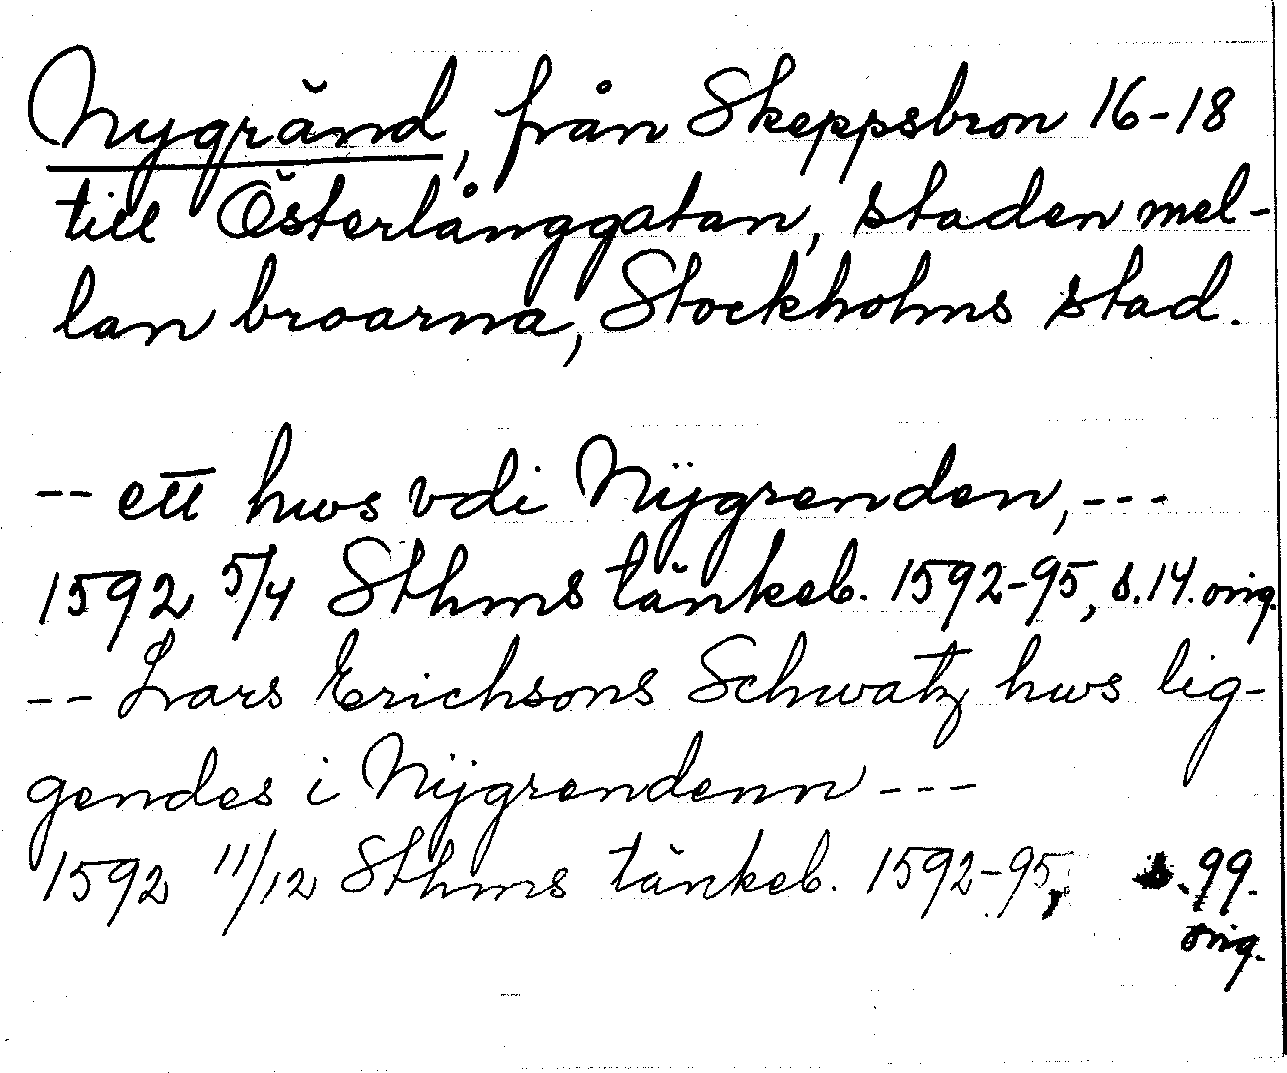 Nygränd, från Skeppsbron 16-18
till Österlånggatan, staden mel-
lan broarna, Stockholms stad.
-- ett hws vdi Nÿgrenden, ---
1592 5/4 Sthms tänkeb. 1592-95, s. 14. orig.
-- Lars Erichsons Schwatz hws lig-
gendes i Nÿgrendenn ---
1592 11/12 Sthms tänkeb. 1592-95, s. 99.
orig.